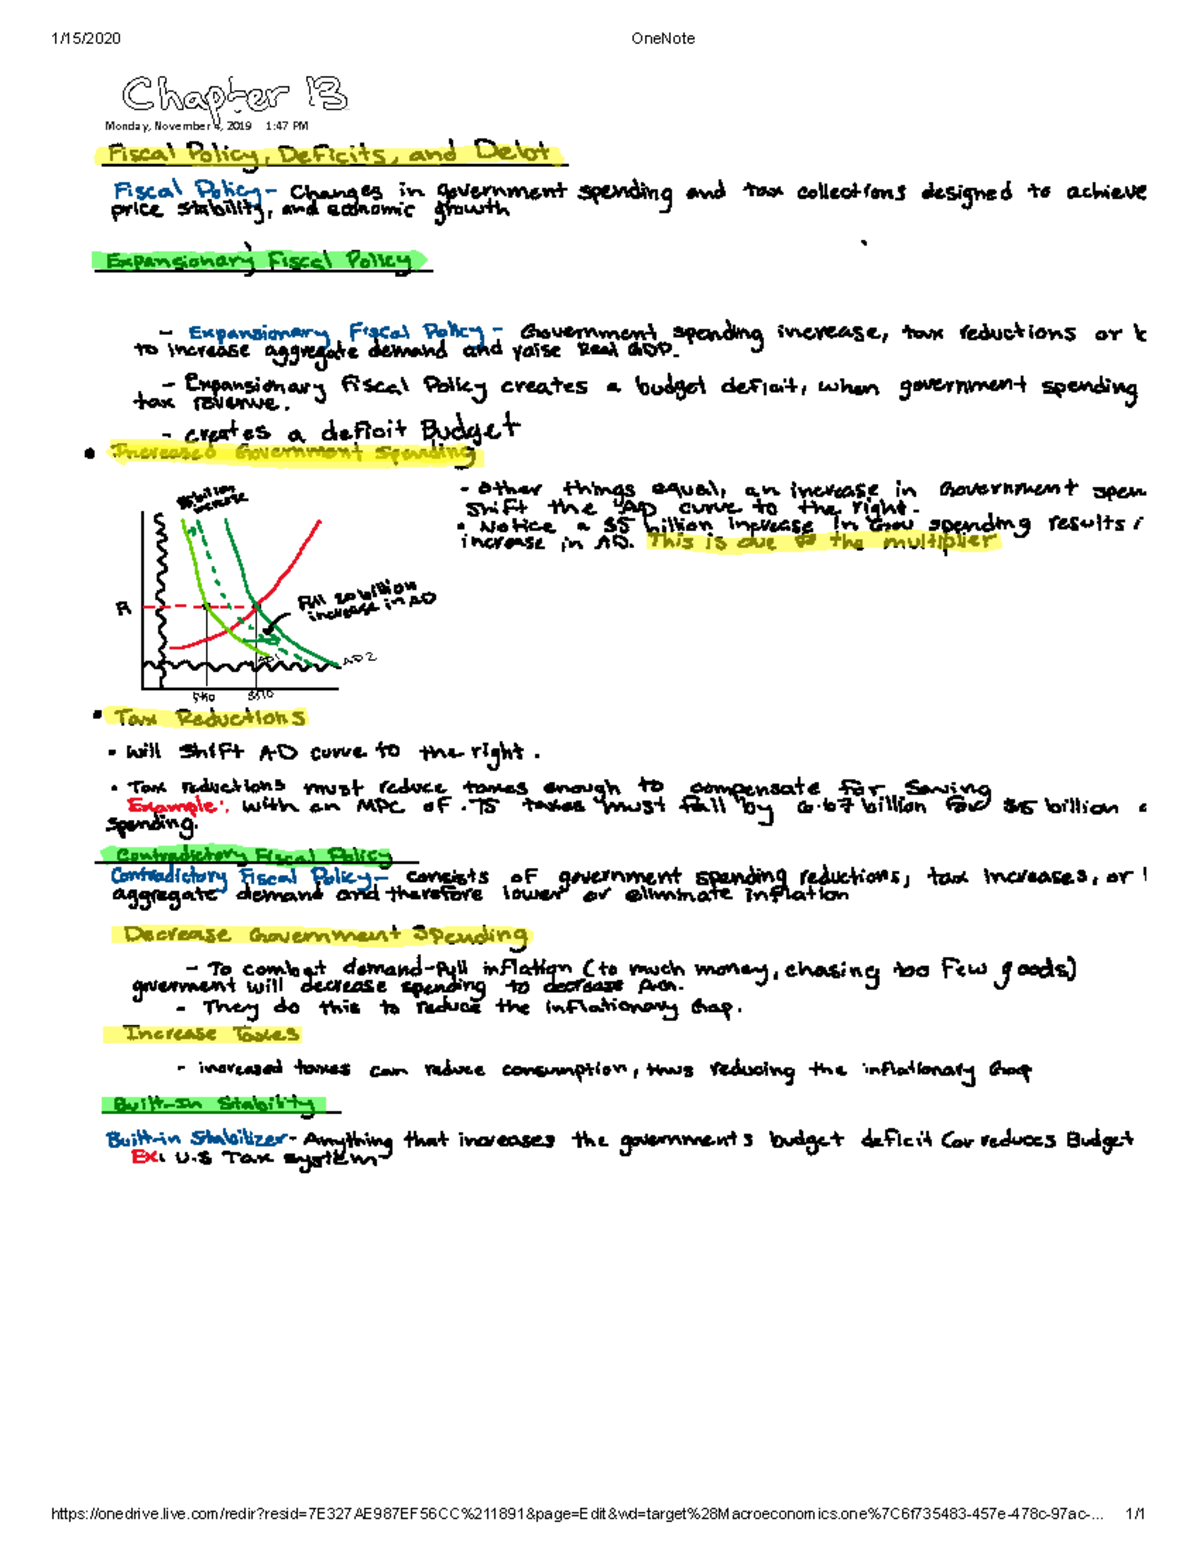 1/15/2020 OneNote
Chapter 13
Monday, November 4, 2019 1:47 PM
Fiscal Policy, Deficits, and Debt
Fiscal Policy - Changes in government spending and tax collections designed to achieve
price stability, and economic growth
Expansionary Fiscal Policy
- Expansionary Fiscal Policy - Government spending increase, tax reductions or
to increase aggregate demand and raise Real GDP.
- Expansionary Fiscal Policy creates a budget deficit, when government spending
tax revenue.
- creates a deficit Budget
• Increased Government Spending
- Other things equal, an increase in Government spen
shift the AD curve to the right.
• Notice a $5 billion increase in Gov spending results i
increase in AD. This is due to the multiplier
billion
increase
P1
Full 20 billion
increase in AD
AD1
AD2
• Tax Reductions
• Will shift AD curve to the right.
• Tax reductions must reduce taxes enough to compensate for Saving
Example: with an MPC of .75 taxes must fall by 6.67 billion for $5 billion
spending.
Contradictory Fiscal Policy
Contradictory Fiscal Policy - consists of government spending reductions, tax increases, or
aggregate demand and therefore lower or eliminate inflation
Decrease Government Spending
- To combat demand-pull inflation (to much money, chasing too few goods)
goverment will decrease spending to decrease
- They do this to reduce the inflationary Gap.
Increase Taxes
- increased taxes can reduce consumption, thus reducing the inflationary Gap
Built-In Stability
Built-in Stabilizer - Anything that increases the government's budget deficit (or reduces Budget
Ex: U.S Tax system
https://onedrive.live.com/redir?resid=7E327AE987EF56CC%211891&page=Edit&wd=target%28Macroeconomics.one%7C6f735483-457e-478c-97ac-... 1/1